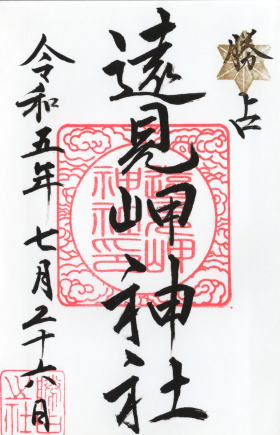 勝占
遠見岬神社
遠見岬
神社印
令和五年七月二十六日